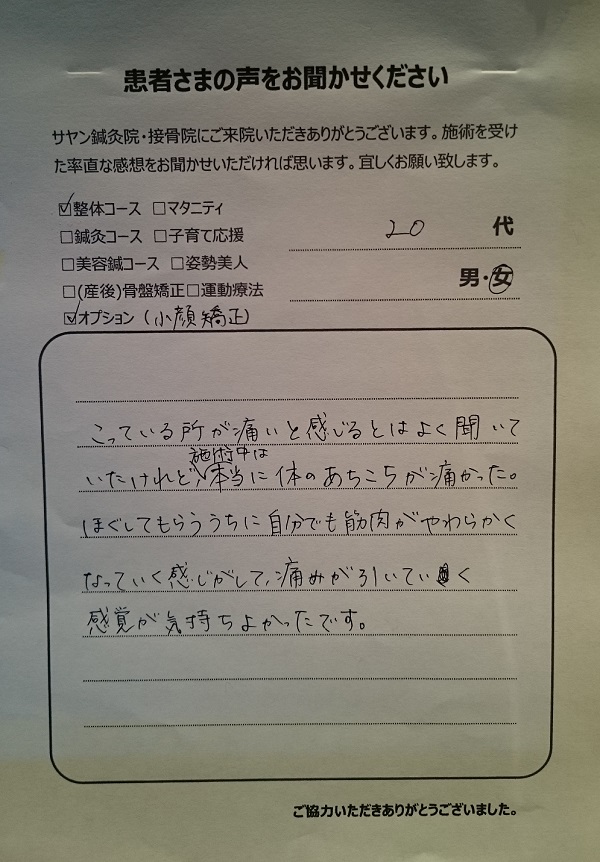 患者さまの声をお聞かせください
サヤン鍼灸院・接骨院にご来院いただきありがとうございます。施術を受け
た率直な感想をお聞かせいただければ思います。宜しくお願い致します。
☑整体コース □マタニティ
□鍼灸コース □子育て応援
□美容鍼コース □姿勢美人
□(産後)骨盤矯正□運動療法
☑オプション (小顔矯正)
20 代
男・女
こっている所が痛いと感じるとはよく聞いて
施術中は
いたけれど、本当に体のあちこちが痛かった。
ほぐしてもらううちに自分でも筋肉がやわらかく
なっていく感じがして、痛みが引いていく
感覚が気持ちよかったです。
ご協力いただきありがとうございました。